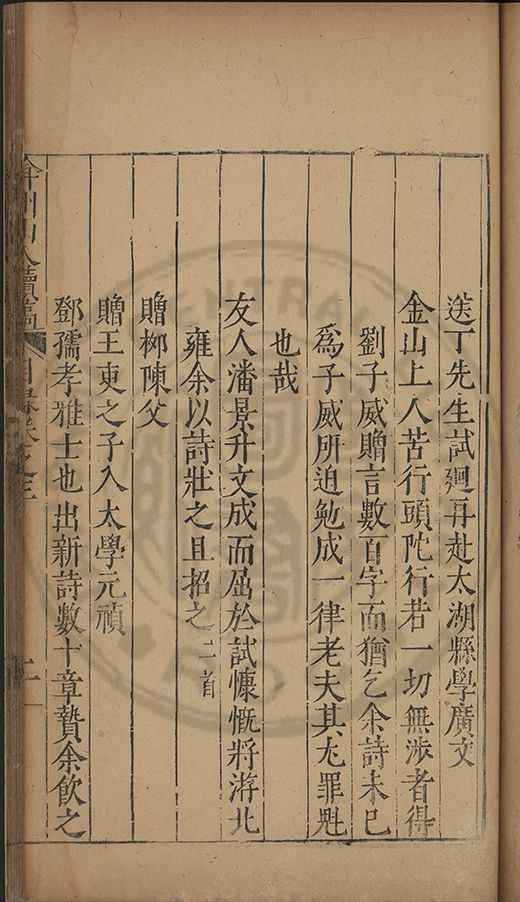 送丁先生試廻再赴太湖縣學廣文
金山上人苦行頭陀行若一切無涉者得
劉子威贈言數百字而猶乞余詩未已
爲子威所迫勉成一律老夫其尤罪魁
也哉
友人潘景升文成而屈於試慷慨將游北
雍余以詩壯之且招之二首
贈柳陳父
贈王吏之子入太學元禎
鄧孺孝雅士也出新詩數十章贄余飲之
弇州山人續稿 目録卷之三